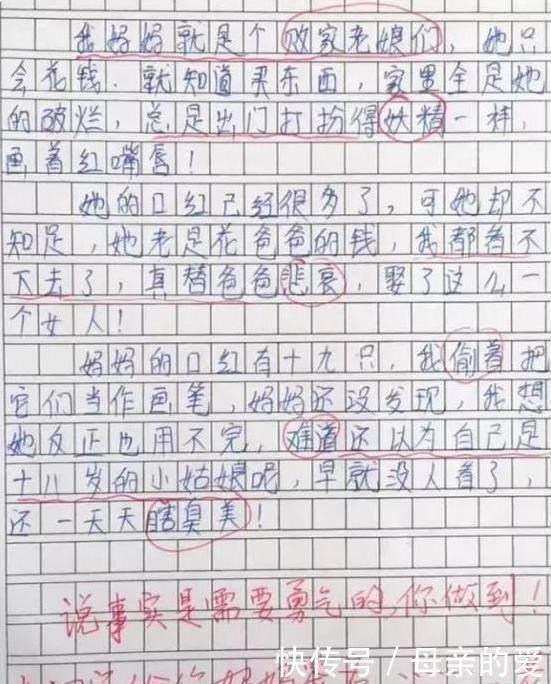 我妈妈就是个败家老娘们，她只
会花钱．就知道买东西，家里全是她
的破烂，总是出门打扮得妖精一样，
画着红嘴唇！
她的口红已经很多了，可她却不
知足，她老是花爸爸的钱，我都看不
下去了，真替爸爸悲哀，娶了这么一
个女人！
妈妈的口红有十九只，我偷着把
它们当作画笔，妈妈还没发现，我想
她反正也用不完，难道还以为自己是
十八岁的小姑娘呢，早就没人看了，
还一天天瞎臭美！
说事实是需要勇气的，你做到！
快传号/母亲的爱